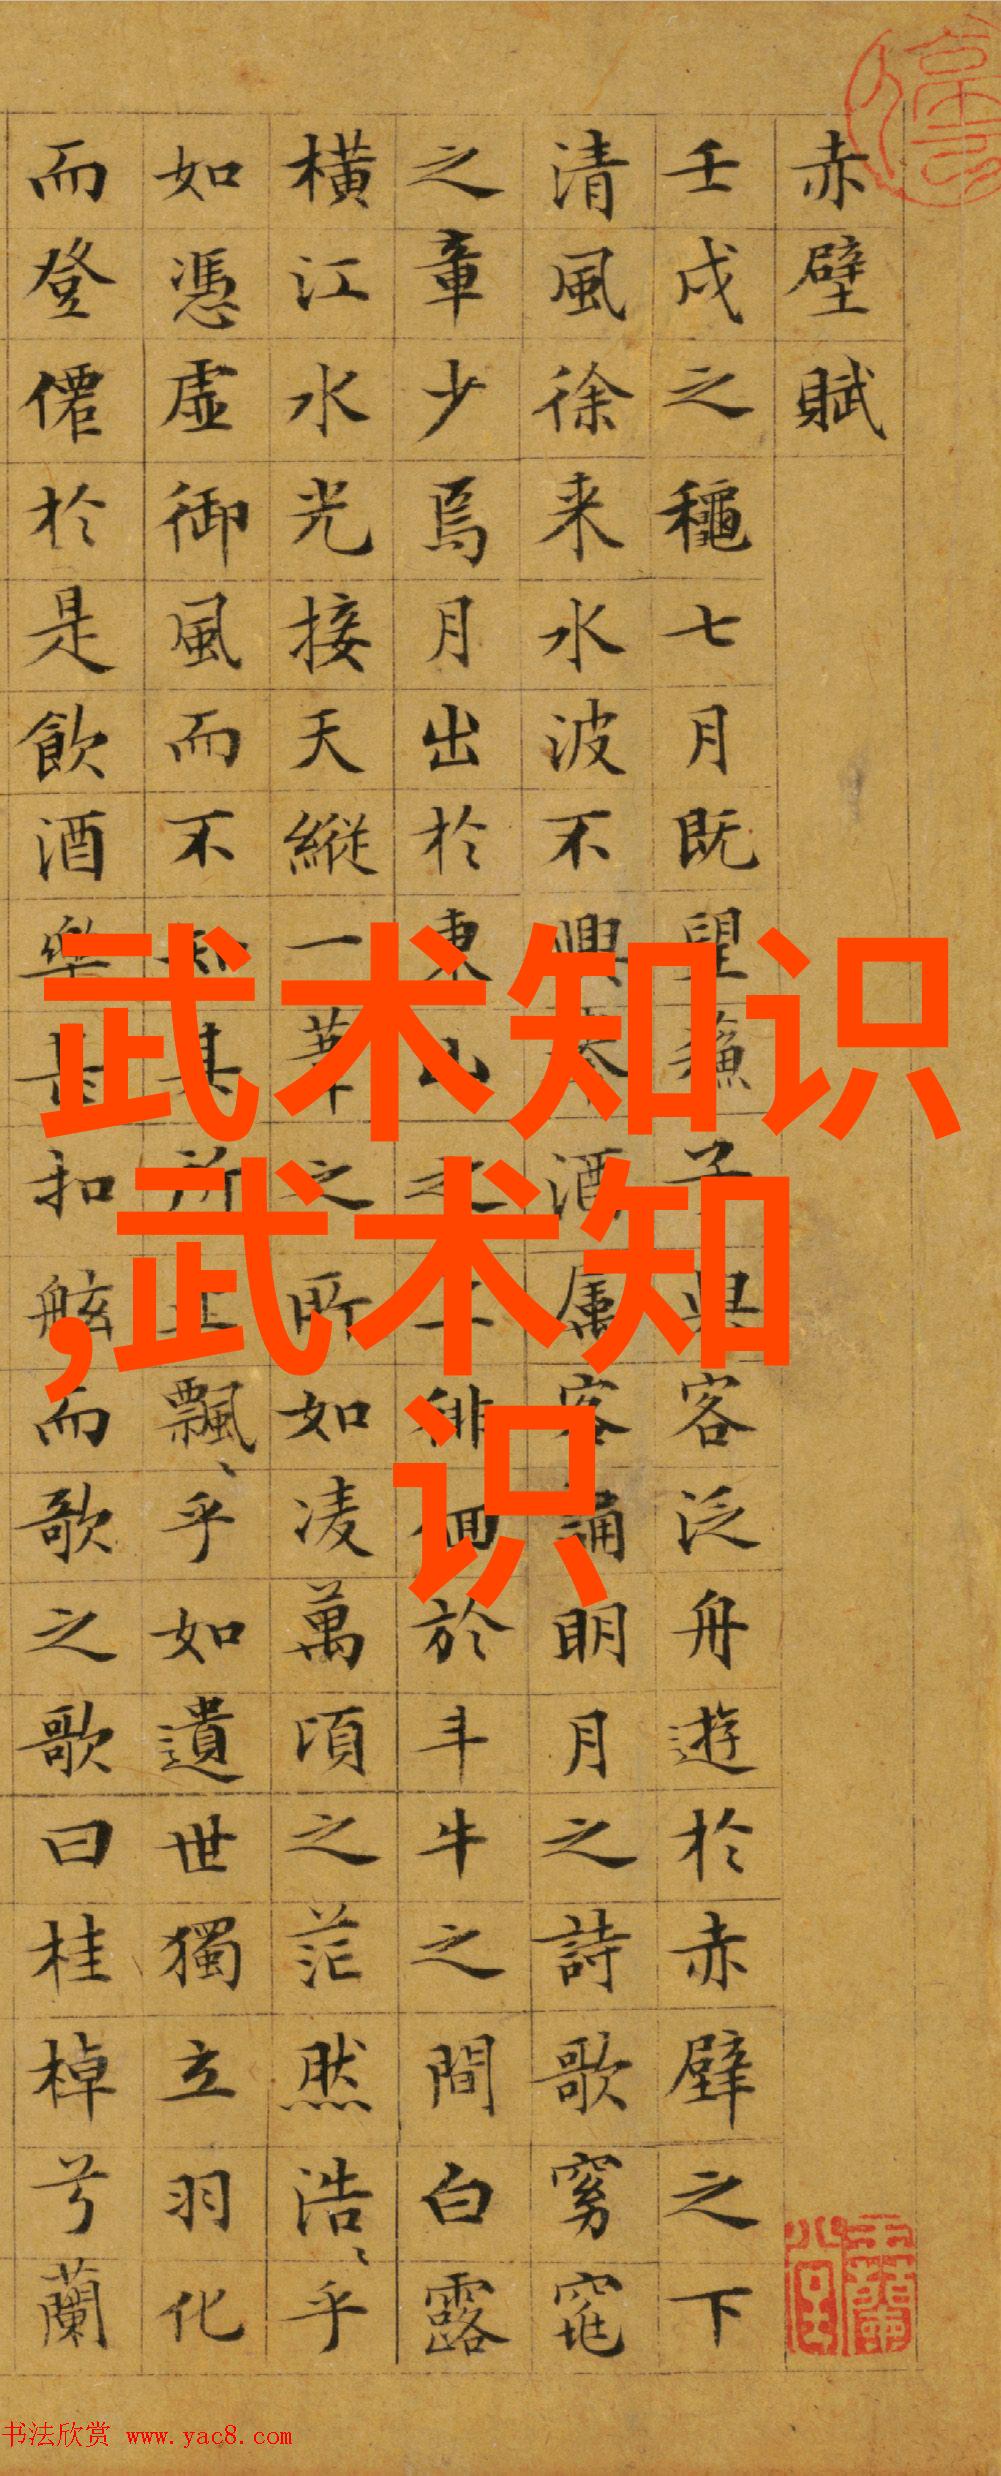 赤壁賦
壬戌之穐七月既望蘓子與客泛舟遊於赤壁之下
清風徐来水波不興舉酒属客誦明月之詩歌窈窕
之章少焉月出於東山之上徘徊於斗牛之間白露
横江水光接天縱一葦之所如凌萬頃之茫然浩、乎
如憑虚御風而不知其所止飄、乎如遺世獨立羽化
而登僊於是飲酒樂甚扣舷而歌之歌曰桂棹兮蘭
武术知识
,武术知
识
书法欣赏 www.yac8.com